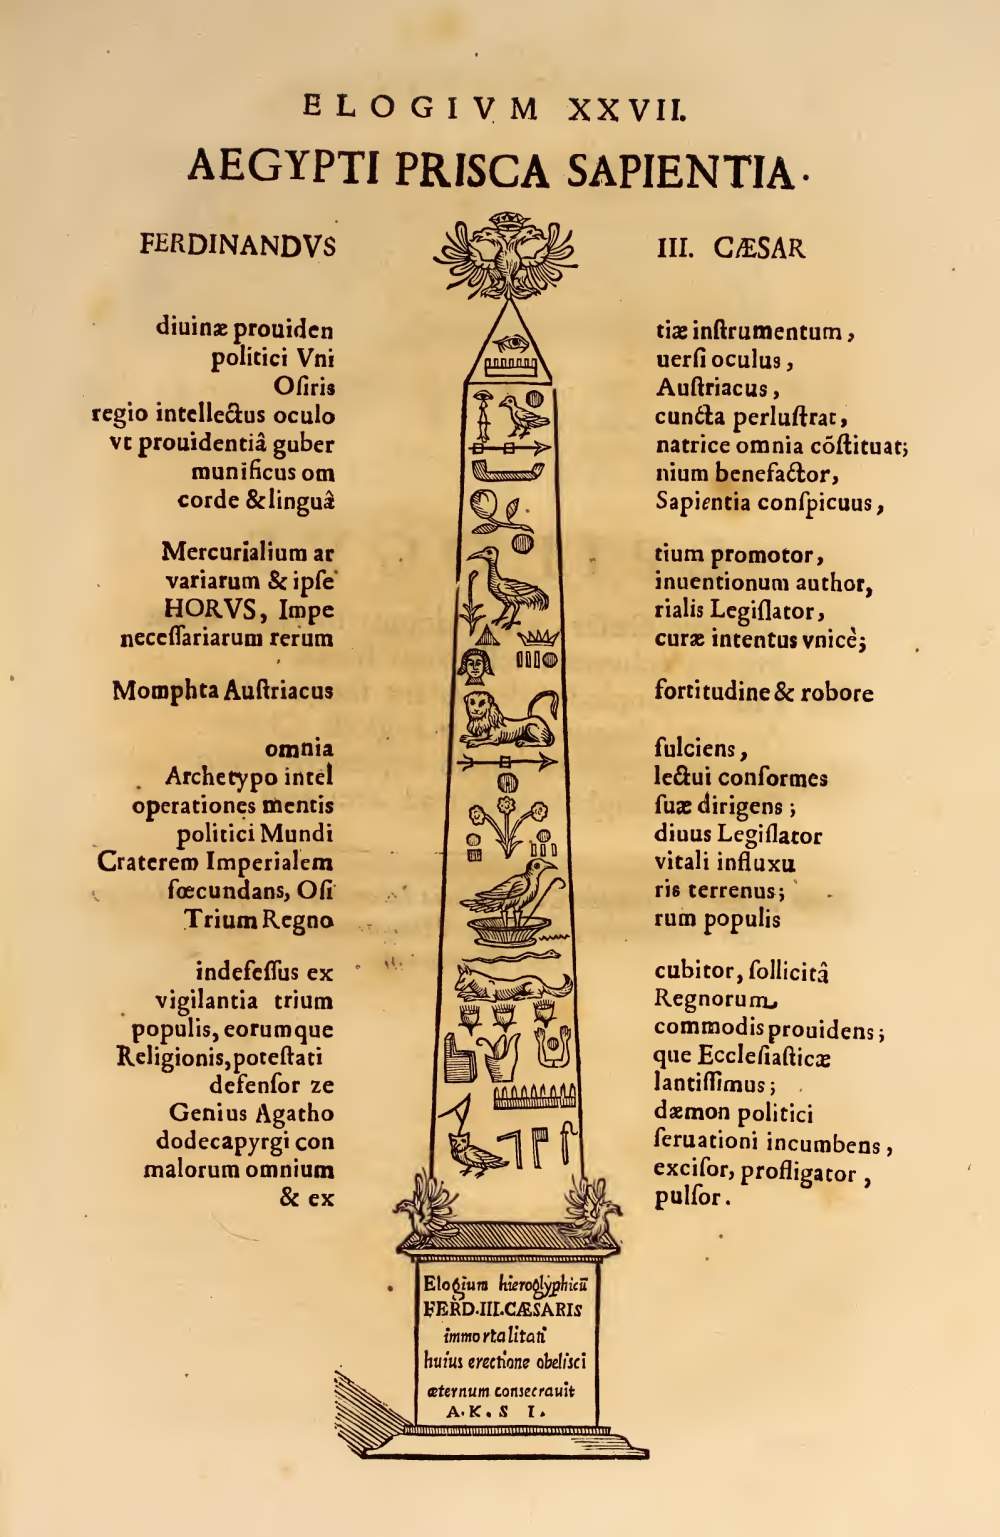 ELOGIVM XXVII.
AEGYPTI PRISCA SAPIENTIA.
FERDINANDVS III. CÆSAR
diuinæ prouiden tiæ inſtrumentum,
politici Vni uerſi oculus,
Oſiris Auſtriacus,
regio intellectus oculo cuncta perluſtrat,
vt prouidentiâ guber natrice omnia cõſtituat;
munificus om nium benefactor,
corde & linguâ Sapientia conſpicuus,
Mercurialium ar tium promotor,
variarum & ipſe inuentionum author,
HORVS, Impe rialis Legiſlator,
neceſſariarum rerum curæ intentus vnicè;
Momphta Auſtriacus fortitudine & robore
omnia fulciens,
Archetypo intel lectui conformes
operationes mentis ſuæ dirigens;
politici Mundi diuus Legiſlator
Craterem Imperialem vitali influxu
fœcundans, Oſi ris terrenus;
Trium Regno rum populis
indefeſſus ex cubitor, ſollicitâ
vigilantia trium Regnorum
populis, eorumque commodis prouidens;
Religionis, poteſtati que Eccleſiaſticæ
defenſor ze lantiſſimus;
Genius Agatho dæmon politici
dodecapyrgi con ſeruationi incumbens,
malorum omnium exciſor, profligator,
& ex pulſor.
Elogium hieroglyphicũ
FERD.III.CÆSARIS
immortalitati
huius erectione obeliſci
æternum conſecrauit
A. K. S I.